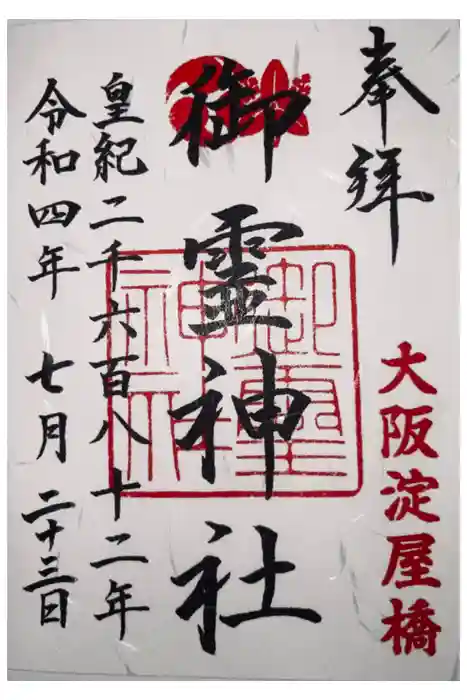 奉拝
大阪淀屋橋
御霊神社
御霊神社
皇紀二千六百八十二年
令和四年 七月二十三日